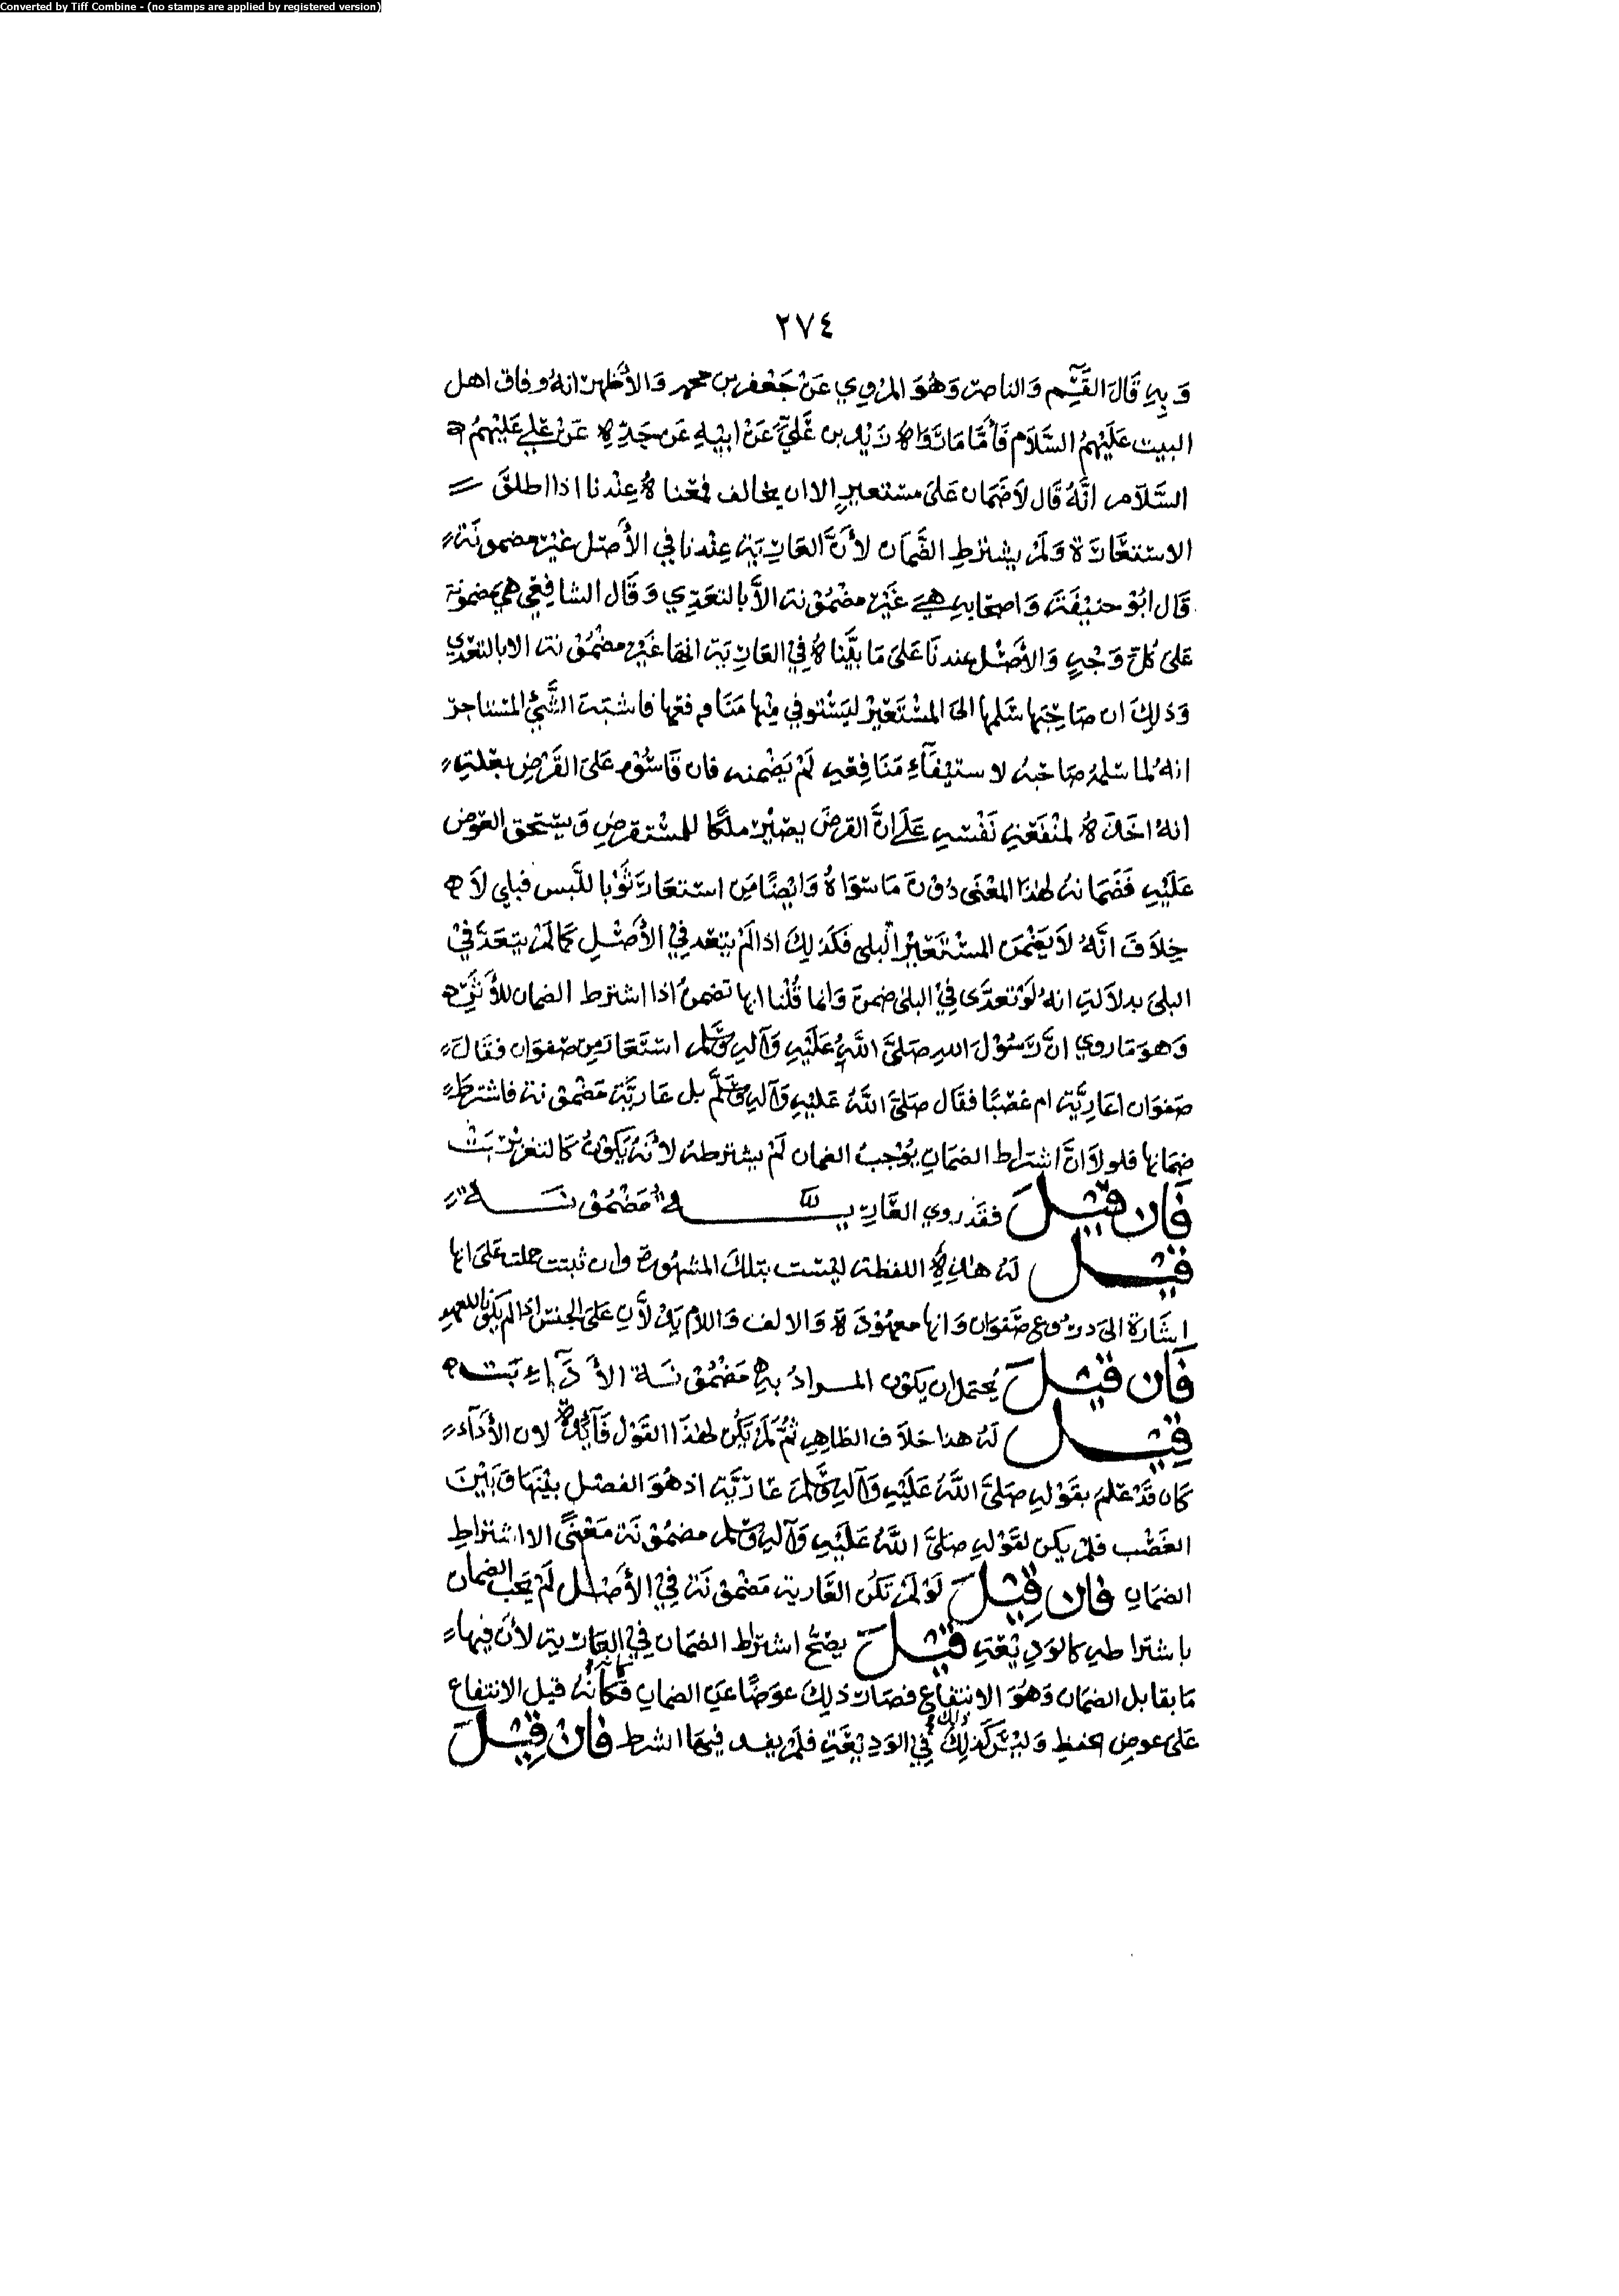 Converted by Tiff Combine - (no stamps are applied by registered version)
٢٧٤
وَبِهِ قَالَ القَسِّم وَالناصر وَهُوَ المرْوي عَنْ جَعْفر بن محمد وَالأَظهر انهُ وفاق اهل
البيت عَلَيْهِمُ السَّلَام فَأَمَّا مَا رَوَاهُ زَيْد بن عَليٍّ عَنْ ابيْهِ عَن جَدِّهِ عَنْ عَلي عَلَيْهِمُ
السَّلَام انَّهُ قَال لاَ ضَمَان عَلىَ مسْتعيرٍ الا ان يخالف فمعْناهُ عِنْدنا اذا اطلقَ
الاستعَارَة وَلَمْ يشترطِ الضَّمَان لأَنَّ العَارِيَة عِنْدنا في الأَصْل غيْر مضمونَة
قَال ابُوْ حنيْفَة وَاصحَابه هي غَيْر مضْمُوْنة الاَّ بالتعَدِّي وَقَال الشافِعي هِي مضمونة
عَلىَ كُلِّ وَجْهٍ وَالأَصْل عندنَا عَلىَ مَا بيَّناهُ في العَارِيَة انهَا غَيْر مضْمُوْنة الا بالتعَدِّي
وَذلِكَ ان صَاحِبَهَا سَلمها الىَ المسْتَعيْر ليَسْتوفي مِنْها مَنَافعهَا فاشبَهَت الشَّيْ المستاجر
انهُ لما سَلمهُ صَاحبهُ لاستيْفَآءِ مَنَافِعهِ لَمْ يَضْمنه فان قَاسُوْه عَلىَ القَرْضِ بعلةِ
انهُ اخَذهُ لمنْفَعَةِ نَفْسهِ عَلَى انَّ القرضَ يصيْر ملكًا للمسْتقرضِ وَيستحق العوَض
عَلَيْهِ فَضَمَانهُ لهذَا المعْنَى دُوْنَ مَا سوَاهُ وَايْضًا مَن استعَارَ ثَوْبًا للبس فبلي لاَ
خِلاَفَ انَّهُ لاَ يَضْمَن المسْتَعيْر البلى فكَذلِكَ اذا لَمْ يتعَد فيْ الأَصْلِ كمَا لَمْ يتعَدَّ فيْ
البلىَ بدلاَلةِ انهُ لَوْ تعدَّى فيْ البلى ضمنَ وَانما قُلْنا انها تضمنُ اذا اشترط الضمان للأَثَر
وَهوَ مَا روي انَّ رَسُوْلَ اللهِ صَلىَّ اللَّهُ عَلَيْهِ وَآلهِ وَسَلَّم استَعَارَ مِن صفوَان فقَالَ
صَفوَان اعَارِيَّة ام غصْبًا فقَال صَلىَّ اللَّهُ عَليْهِ وَآلهِ وَسَلَّمَ بل عَارِيَّة مَضْموْنة فاشترطَ
ضَمَانها فلولاَ انَّ اشتراط الضمَانِ يُوْجبُ الضمان لَمْ يشترطهُ لأَنهُ يَكُوْنُ كالتغرير
فَان قيْلَ فقَد روي العَارِيَّة مَضْمُوْنَة
قيْل لهُ هذهِ اللفظة ليْسَت بتلكَ المشهُورة وان ثبتت حملت عَلىَ انها
اشَارة الىَ دروع صَفوَان وَانها معهُوْدَة وَالالف وَاللام يَدُلاَّنِ عَلىَ الجنس اذا لم يَكُوْنا للعهْدِ
فَان قيْلَ يُحتمل ان يكوْن المراد به مَضْمُوْنَة الأَدَآءِ
قِيْل لهُ هذا خلاَف الظاهِر ثُمَّ لَمْ يَكُن لهذَا القَوْل فَآئِدَة لان الأَدَآءَ
كان قَدْ عُلِمَ بقَوْلهِ صَلىَّ اللَّهُ عَلَيْهِ وَآلهِ وَسَلَّمَ عَارِيَّة اذ هُوَ الفصْل بيْنَهَا وَبَيْنَ
الغَصْب فلم يكن لقَوْلهِ صَلىَّ اللَّهُ عَلَيْهِ وَآلهِ وَسَلَّم مضمُوْنَة مَعْنًى الا اشتراطِ
الضمَانِ فان قِيْلَ لَوْ لَمْ تَكُن العَارية مَضْموْنَة فيْ الأَصْل لَمْ يجب الضمان
باشتراطهِ كالوَدِيْعَةِ قيْلَ يصحّ اشتراط الضمَان فيْ العَارية لأَن فيها
مَا يقَابل الضمَان وَهُوَ الانتفَاع فصَارَ ذلِكَ عوَضًا عن الضمانِ فكأنهُ قيل الانتفاع
عَلىَ عوض الحفظِ وَليْسَ كَذلِكَ في الوَدِيْعَةِ فلَمْ يفد فيهَا الشرط فان قِيْلَ